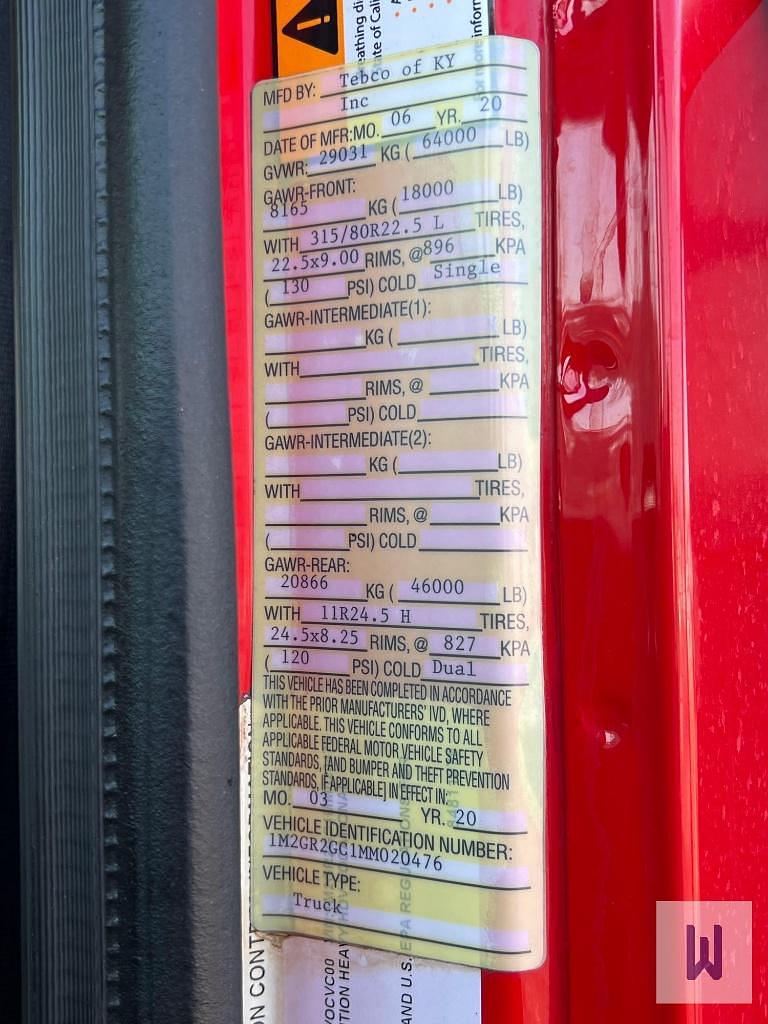 eathing di
ate of Cali
more inform
MFD BY: Tebco of KY
Inc
DATE OF MFR:MO. 06 YR. 20
GVWR: 29031 KG ( 64000 LB)
GAWR-FRONT:
8165 KG ( 18000 LB)
WITH 315/80R22.5 L TIRES,
22.5x9.00 RIMS, @896 KPA
( 130 PSI) COLD Single
GAWR-INTERMEDIATE(1):
KG ( LB)
WITH TIRES,
RIMS, @ KPA
( PSI) COLD
GAWR-INTERMEDIATE(2):
KG ( LB)
WITH TIRES,
RIMS, @ KPA
( PSI) COLD
GAWR-REAR:
20866 KG ( 46000 LB)
WITH 11R24.5 H TIRES,
24.5x8.25 RIMS, @ 827 KPA
( 120 PSI) COLD Dual
THIS VEHICLE HAS BEEN COMPLETED IN ACCORDANCE
WITH THE PRIOR MANUFACTURERS' IVD, WHERE
APPLICABLE. THIS VEHICLE CONFORMS TO ALL
APPLICABLE FEDERAL MOTOR VEHICLE SAFETY
STANDARDS, [AND BUMPER AND THEFT PREVENTION
STANDARDS, IF APPLICABLE] IN EFFECT IN:
MO. 03 YR. 20
VEHICLE IDENTIFICATION NUMBER:
1M2GR2GC1MM020476
VEHICLE TYPE:
Truck
ON CONT
YOCVC00
TION HEAVY
AND U.S. EPA REGU
W